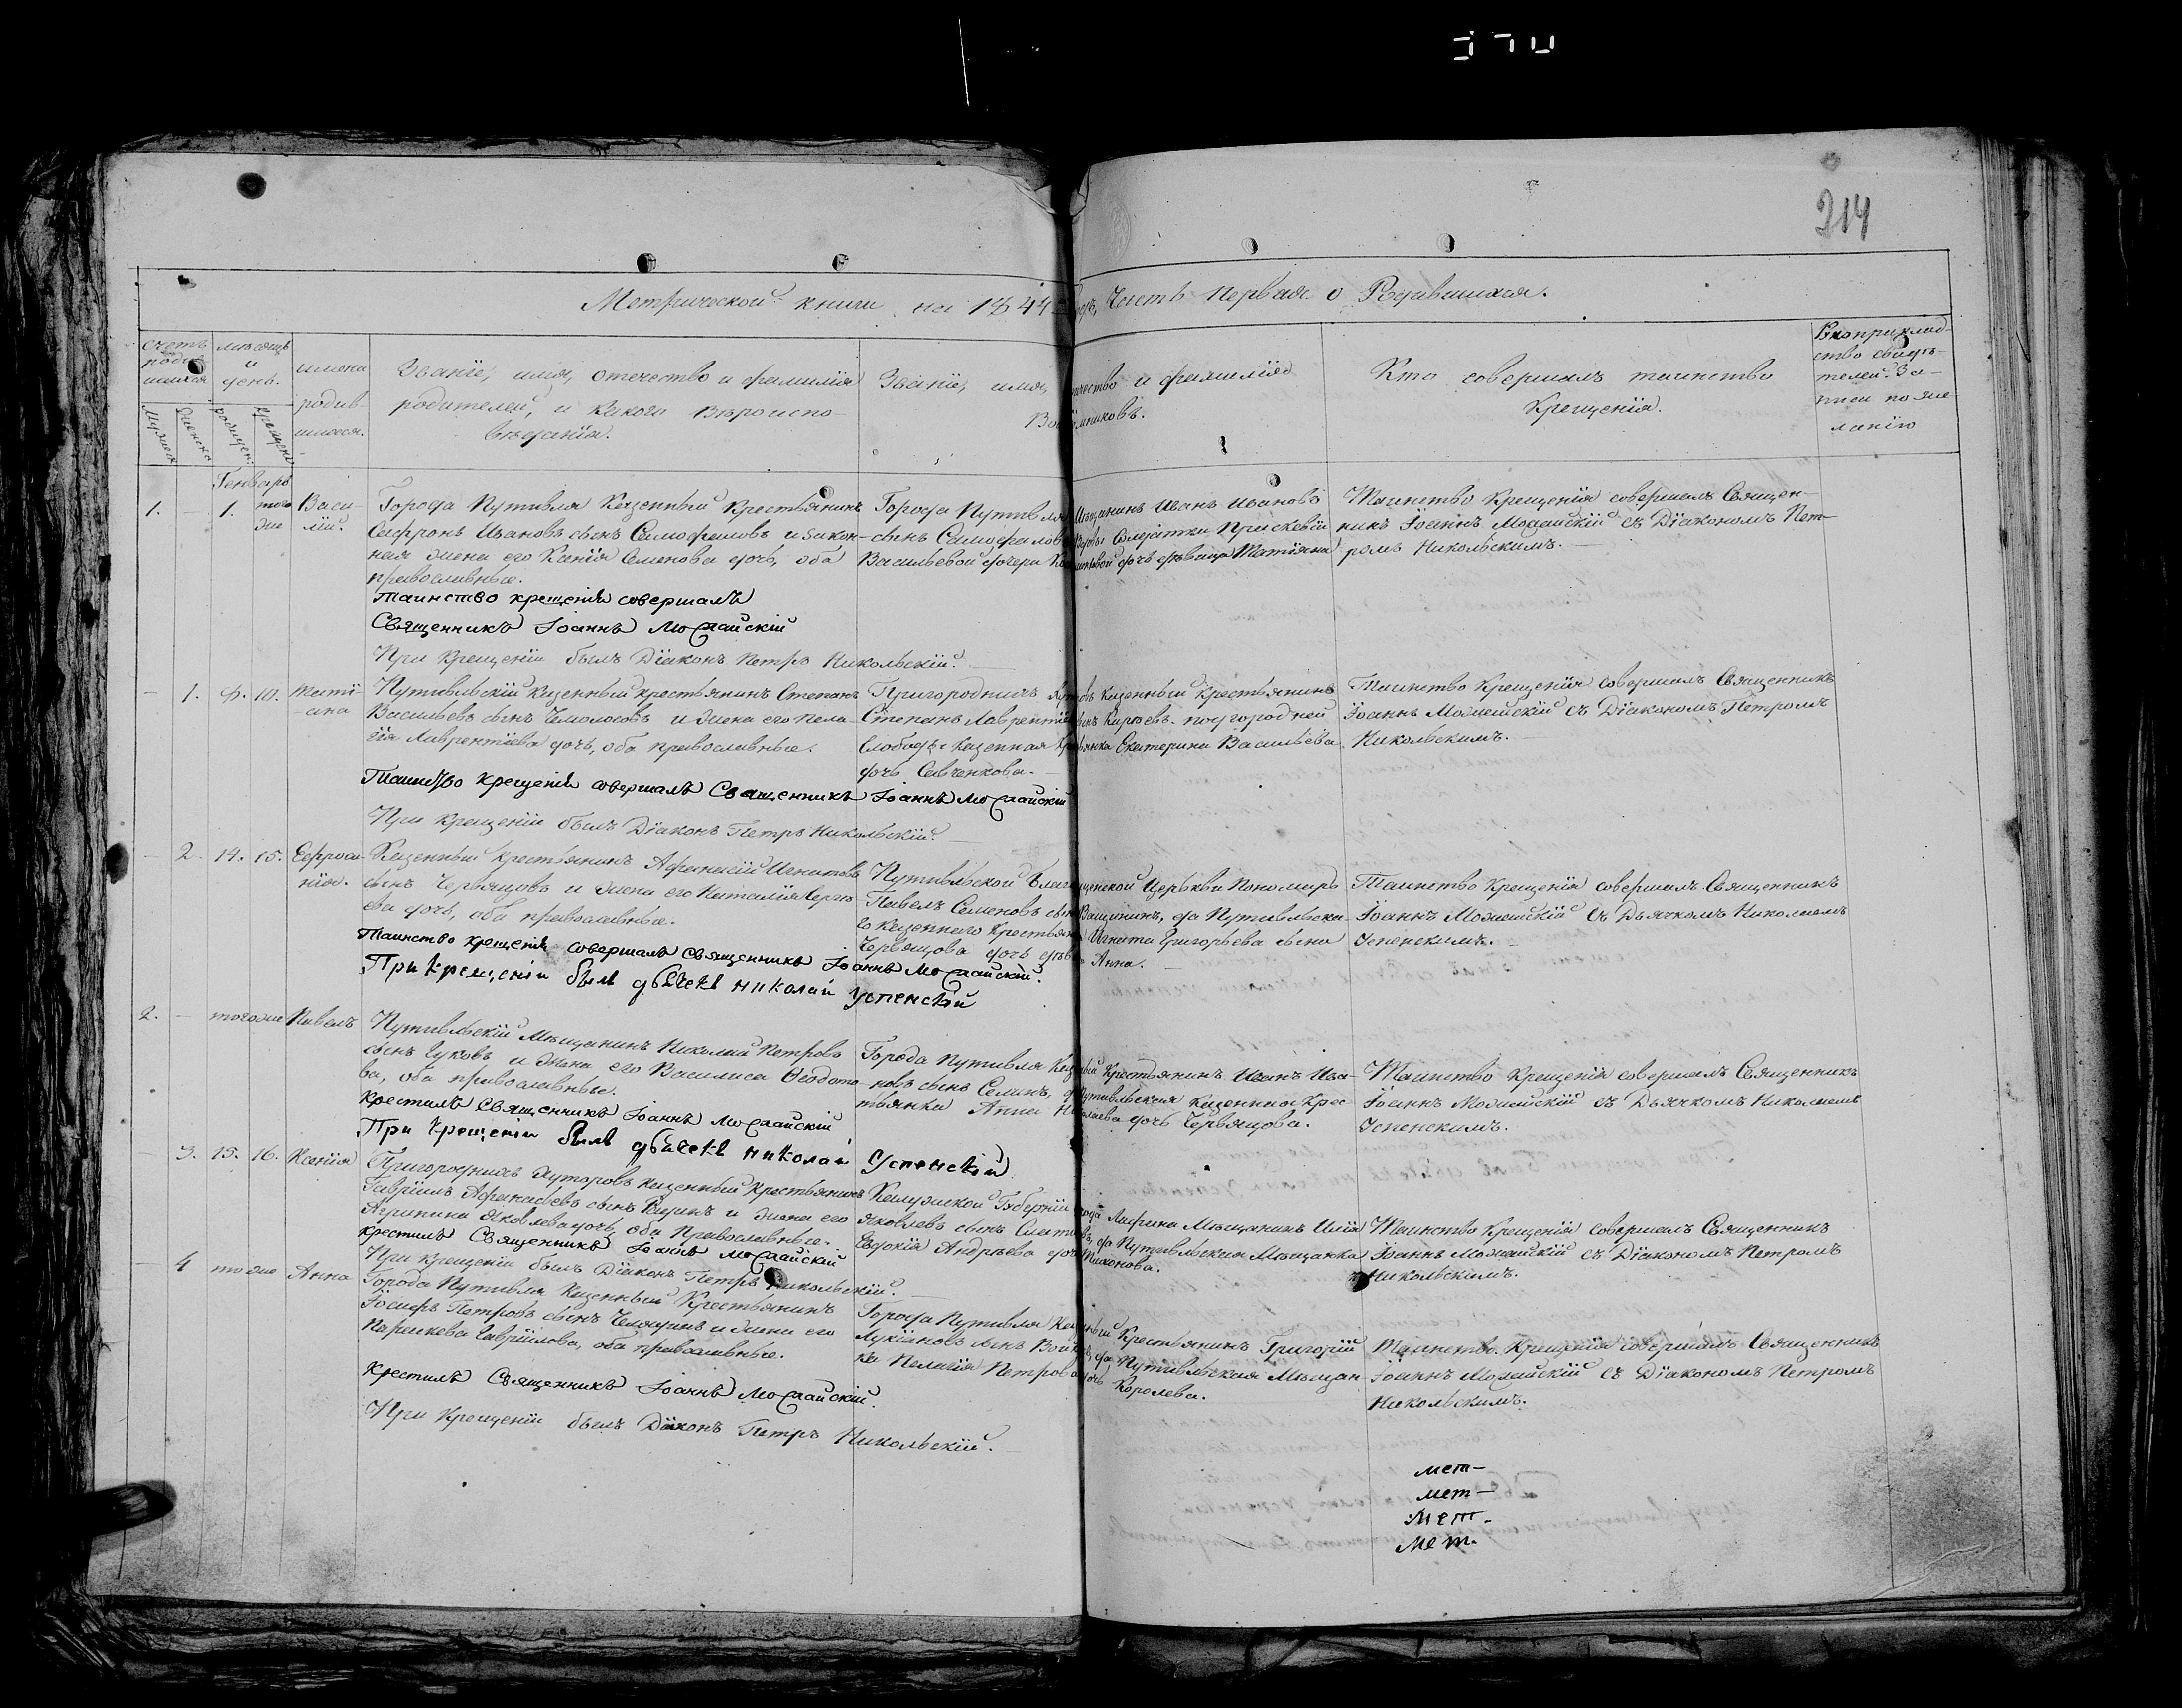 214
Метрической книги на 1844 годъ, Часть первая о Родившихся.
счетъ родившихся
мѣсяцъ и день.
имена родившихся.
Званіе, имя, отечество и фамилія
родителей, и какого вѣроиспо-
вѣданія.
Званіе, имя, отчество и фамилія
Воспріемниковъ.
Кто совершалъ таинство
Крещенія.
Рукоприклад-
ство свидѣ-
телей За-
писи по же-
ланію
Мужеска
Женска
рожден.
крещенія
Генварь
1. — 1. того дне
Васи-
лій.
Города Путивля Казенный Крестьянинъ
Софронъ Ивановъ сынъ Самофаловъ и закон-
ная жена его Ксенія Семенова дочь, оба
православные.
Таинство крещенія совершалъ
Священникъ Іоаннъ Можайскій
При Крещеніи былъ Діаконъ Петръ Никольскій.
Города Путивля Мѣщанинъ Иванъ Ивановъ
сынъ Самофаловъ Солдатки Прискевіи
Васильевой дочери дочь дѣвица Татіяна
Таинство Крещенія совершалъ Священ-
никъ Іоаннъ Можайскій съ Діакономъ Пет-
ромъ Никольскимъ.
— 1. 10.
Таті-
яна
Путивльскій Казенный крестьянинъ Степанъ
Васильевъ сынъ и жена его Пела-
гія Лаврентіева дочь, оба православные.
Таинство Крещенія совершалъ Священникъ Іоаннъ Можайскій
При Крещеніи былъ Діаконъ Петръ Никольскій.
Пригородныхъ Хуторовъ Казенный Крестьянинъ
Степанъ Лаврентіевъ сынъ Кирѣевъ. подгородней
Слободы Казенная Крестьянка Екатерина Васильева
дочь Савченкова.
Таинство Крещенія совершалъ Священникъ
Іоаннъ Можайскій съ Діакономъ Петромъ
Никольскимъ.
— 2. 14. 15.
Ефроси-
нія.
Казенный Крестьянинъ Афанасій Игнатовъ
сынъ Червяцовъ и жена его Наталія Сергѣ-
ева дочь, оба православные.
Таинство крещенія совершалъ Священникъ Іоаннъ Можайскій.
При Крещеніи былъ дьячекъ Николай Успенскій
Путивльской Благовѣщенской Церькви Пономарь
Павелъ Семеновъ сынъ Ващининъ, да Путивльска-
го Казеннаго Крестьянина Игната Григорьева сына
Червяцова дочь дѣвица Анна.
Таинство Крещенія совершалъ Священникъ
Іоаннъ Можайскій съ Дьячкомъ Николаемъ
Успенскимъ.
2. — того дне
Павелъ
Путивльскій Мѣщанинъ Николай Петровъ
сынъ Гуковъ и жена его Василиса Ѳеодото-
ва, оба православные.
Крестилъ Священникъ Іоаннъ Можайскій
При Крещеніи былъ дьячекъ Николай Успенскій
Города Путивля Казенный Крестьянинъ Иванъ Ива-
новъ сынъ Селинъ, да Путивльская Казенная Крес-
тьянка Анна Николаева дочь Червяцова.
Таинство Крещенія совершалъ Священникъ
Іоаннъ Можайскій съ Дьячкомъ Николаемъ
Успенскимъ.
— 3. 15. 16.
Ксенія
Пригородныхъ Хуторовъ Казенный Крестьянинъ
Гавріилъ Афанасьевъ сынъ и жена его
Агрипина Яковлева дочь, оба Православные.
Крестилъ Священникъ Іоаннъ Можайскій
При Крещеніи былъ Діаконъ Петръ Никольскій.
Калужской Губерніи города Мѣщанинъ Илія
Яковлевъ сынъ да Путивльская Мѣщанка
Евдокія Андрѣева дочь Тихонова.
Таинство Крещенія совершалъ Священникъ
Іоаннъ Можайскій съ Діакономъ Петромъ
Никольскимъ.
— 4 то дне
Анна
Города Путивля Казенный Крестьянинъ
Іосифъ Петровъ сынъ и жена его
Параскева Гавріилова, оба православные.
Крестилъ Священникъ Іоаннъ Можайскій.
При Крещеніи былъ Діаконъ Петръ Никольскій.
Города Путивля Казенный Крестьянинъ Григорій
Лукіановъ сынъ да Путивльская Мѣщан-
ка Пелагія Петрова дочь Королева.
Таинство Крещенія совершалъ Священникъ
Іоаннъ Можайскій съ Діакономъ Петромъ
Никольскимъ.
мет-
мет-
мет-
мет.